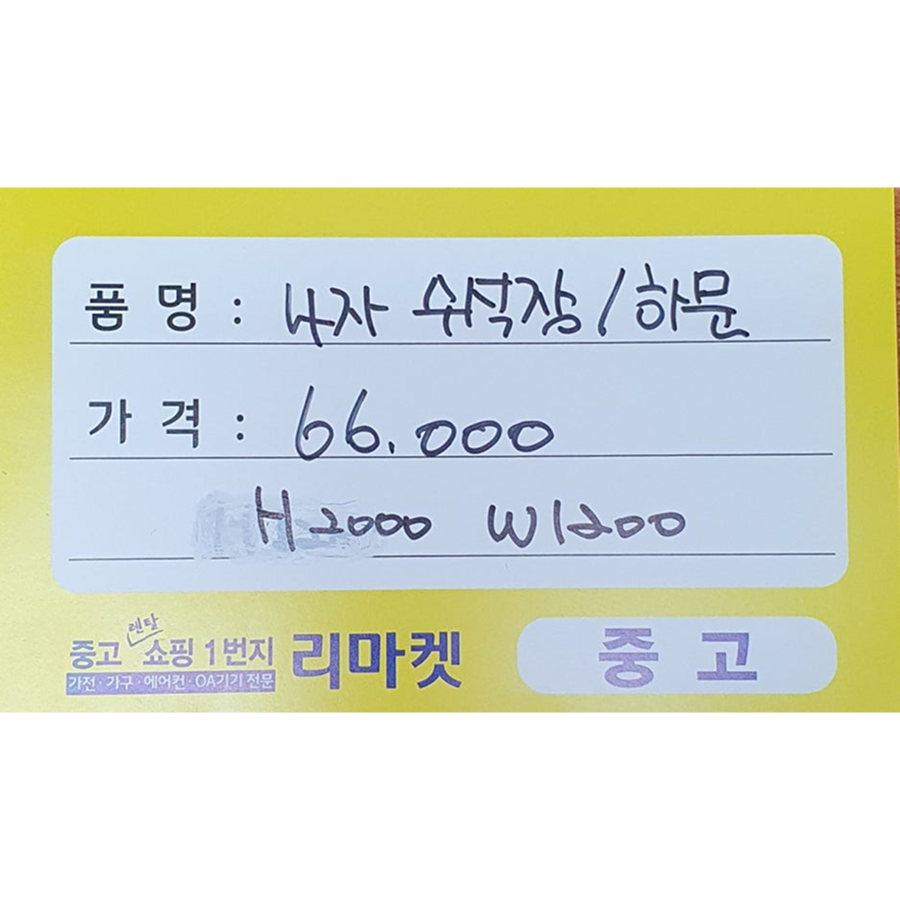 품 명 : 4자 수석장/하문
가 격 : 66.000
H 2000 W1200
렌탈
중고 쇼핑 1번지 리마켓 중 고
가전·가구·에어컨·OA기기 전문